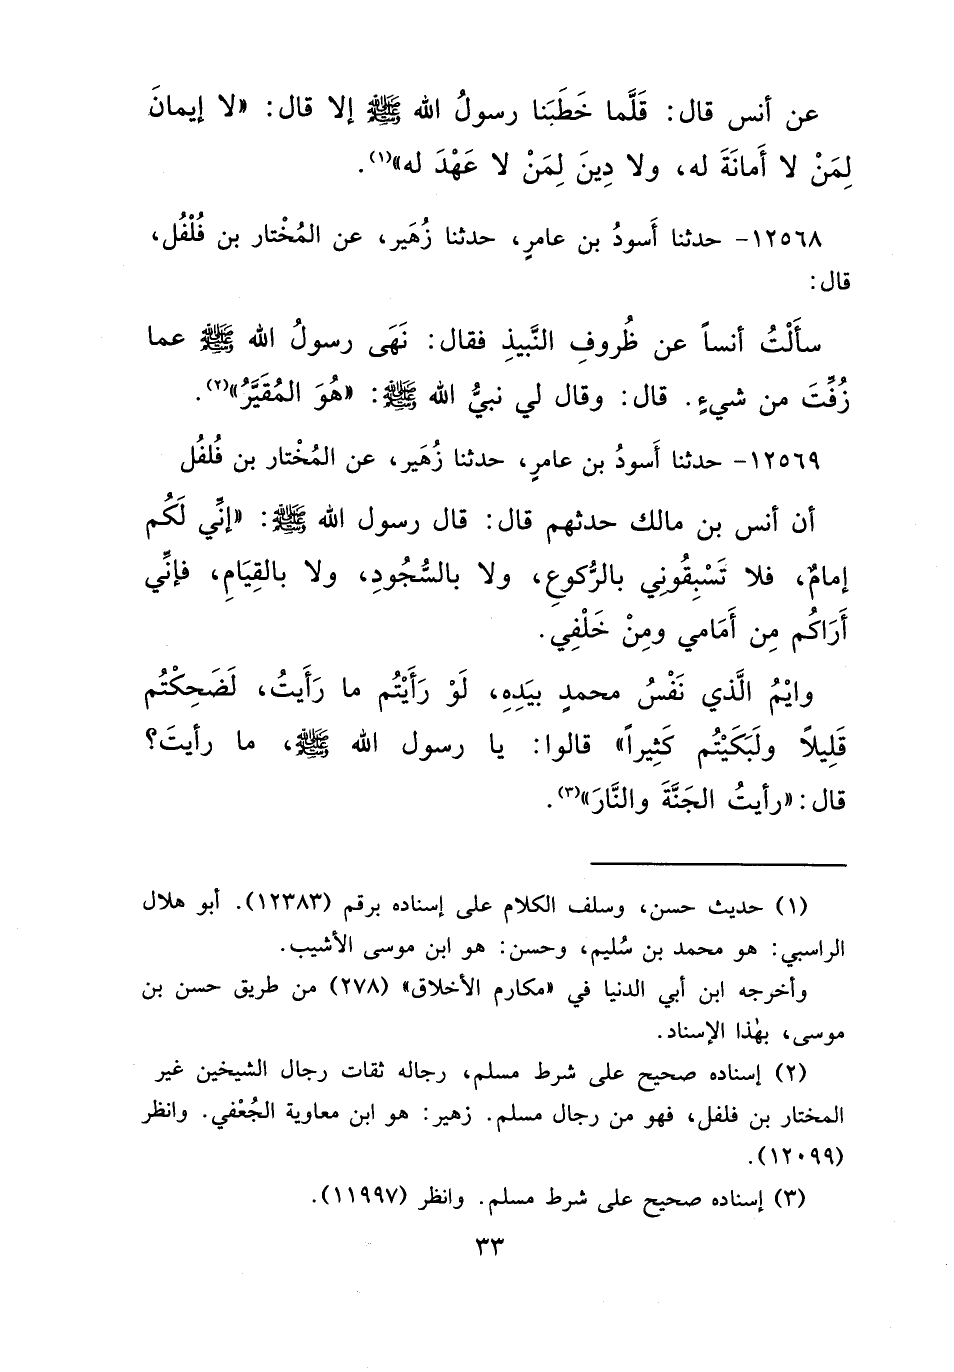 عن أنس قال: قَلَّما خَطَبَنا رسولُ الله ﷺ إلا قال: «لا إيمانَ
لِمَنْ لا أَمانَةَ له، ولا دِينَ لِمَنْ لا عَهْدَ له»(١).
١٢٥٦٨- حدثنا أَسودُ بن عامرٍ، حدثنا زُهَير، عن المُخْتار بن فُلْفُل،
قال:
سأَلْتُ أنساً عن ظُروفِ النَّبيذِ فقال: نَهَى رسولُ الله ﷺ عما
زُفِّتَ من شيءٍ. قال: وقال لي نبيُّ الله ﷺ: «هُوَ المُقَيَّرُ»(٢).
١٢٥٦٩- حدثنا أَسودُ بن عامرٍ، حدثنا زُهَير، عن المُخْتار بن فُلفُل
أن أنس بن مالك حدثهم قال: قال رسول الله ﷺ: «إنِّي لَكُم
إمامٌ، فلا تَسْبِقُونِي بالرُّكوعِ، ولا بالسُّجُودِ، ولا بالقِيَامِ، فإنِّي
أَرَاكُم مِن أَمَامي ومِنْ خَلْفِي.
وايْمُ الَّذي نَفْسُ محمدٍ بيَدِهِ، لَوْ رَأَيْتُم ما رَأَيتُ، لَضَحِكْتُم
قَلِيلاً ولَبَكَيْتُم كَثِيراً» قالوا: يا رسول الله ﷺ، ما رأيتَ؟
قال: «رأيتُ الجَنَّةَ والنَّارَ»(٣).
(١) حديث حسن، وسلف الكلام على إسناده برقم (١٢٣٨٣). أبو هلال
الراسبي: هو محمد بن سُليم، وحسن: هو ابن موسى الأشيب.
وأخرجه ابن أبي الدنيا في «مكارم الأخلاق» (٢٧٨) من طريق حسن بن
موسى، بهٰذا الإسناد.
(٢) إسناده صحيح على شرط مسلم، رجاله ثقات رجال الشيخين غير
المختار بن فلفل، فهو من رجال مسلم. زهير: هو ابن معاوية الجُعْفي. وانظر
(١٢٠٩٩).
(٣) إسناده صحيح على شرط مسلم. وانظر (١١٩٩٧).
٣٣